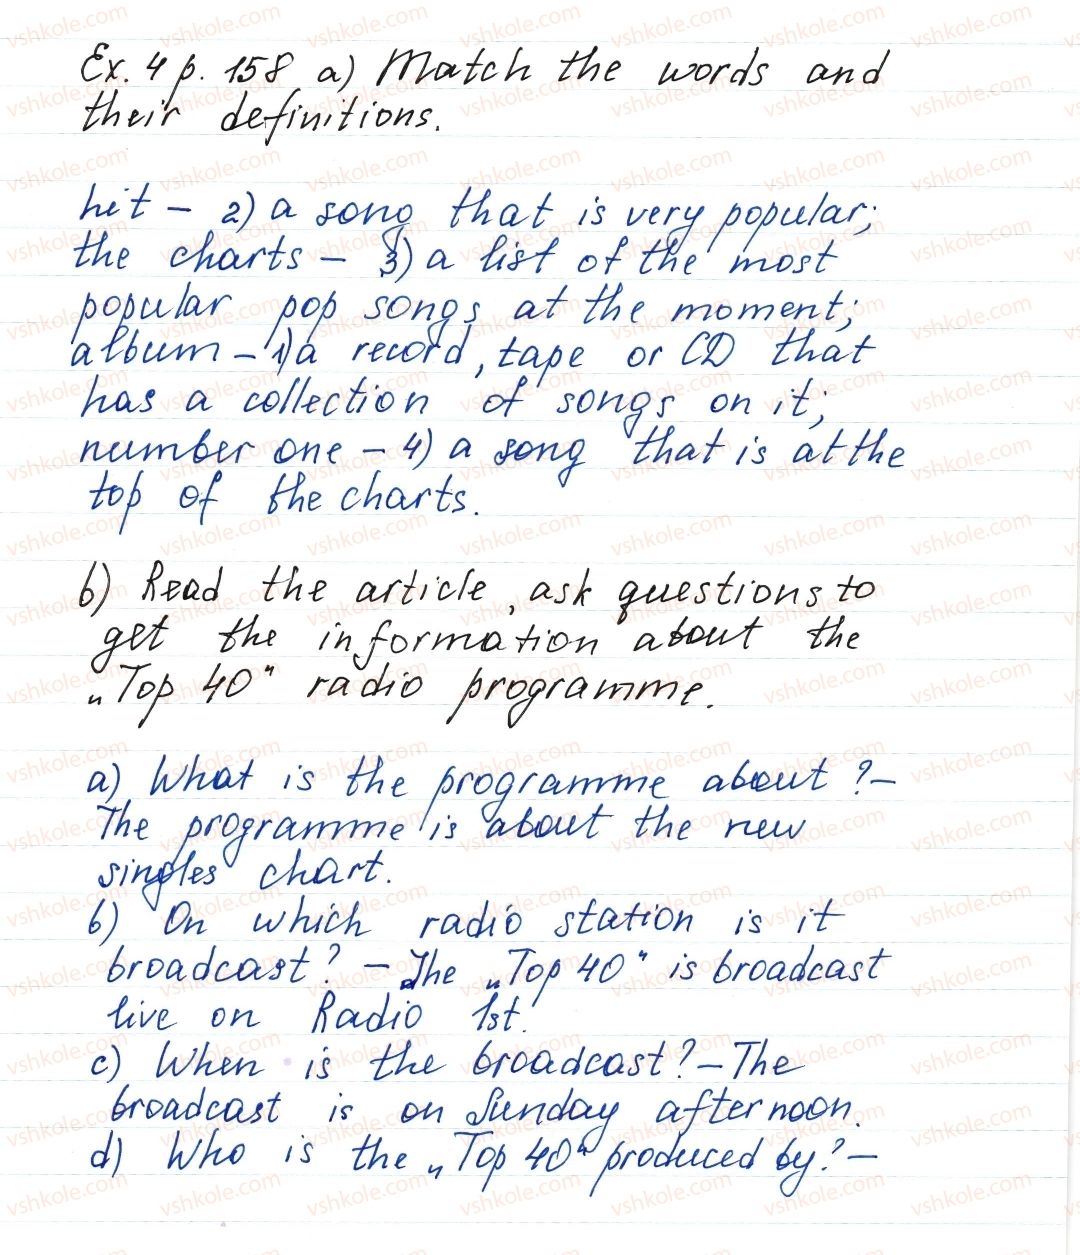 Ex. 4 p. 158 a) Match the words and
their definitions.
hit – 2) a song that is very popular;
the charts – 3) a list of the most
popular pop songs at the moment;
album – 1) a record, tape or CD that
has a collection of songs on it;
number one – 4) a song that is at the
top of the charts.
b) Read the article, ask questions to
get the information about the
„Top 40" radio programme.
a) What is the programme about? –
The programme is about the new
singles chart.
b) On which radio station is it
broadcast? – The „Top 40" is broadcast
live on Radio 1st.
c) When is the broadcast? – The
broadcast is on Sunday afternoon.
d) Who is the „Top 40" produced by? –